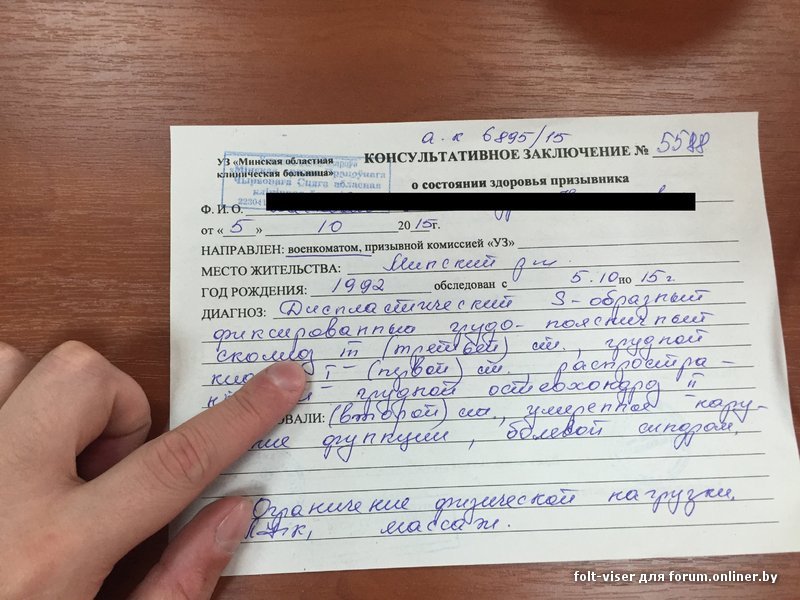 а.к 6895/15
УЗ «Минская областная клиническая больница»
КОНСУЛЬТАТИВНОЕ ЗАКЛЮЧЕНИЕ № 5588
о состоянии здоровья призывника
Ф. И. О.
от « 5 » 10 2015г.
НАПРАВЛЕН: военкоматом, призывной комиссией «УЗ»
МЕСТО ЖИТЕЛЬСТВА: Минский р-н
ГОД РОЖДЕНИЯ: 1992 обследован с 5.10 по 15 г.
ДИАГНОЗ: Диспластический S-образный
фиксированный грудо-поясничный
сколиоз III (третьей) ст., грудной
I - (первой) ст., распростра-
грудной остеохондроз II
ОВАЛИ: (второй) ст., умеренное нару-
функции, болевой синдром.
Ограничение физической нагрузки,
массаж.
folt-viser для forum.onliner.by